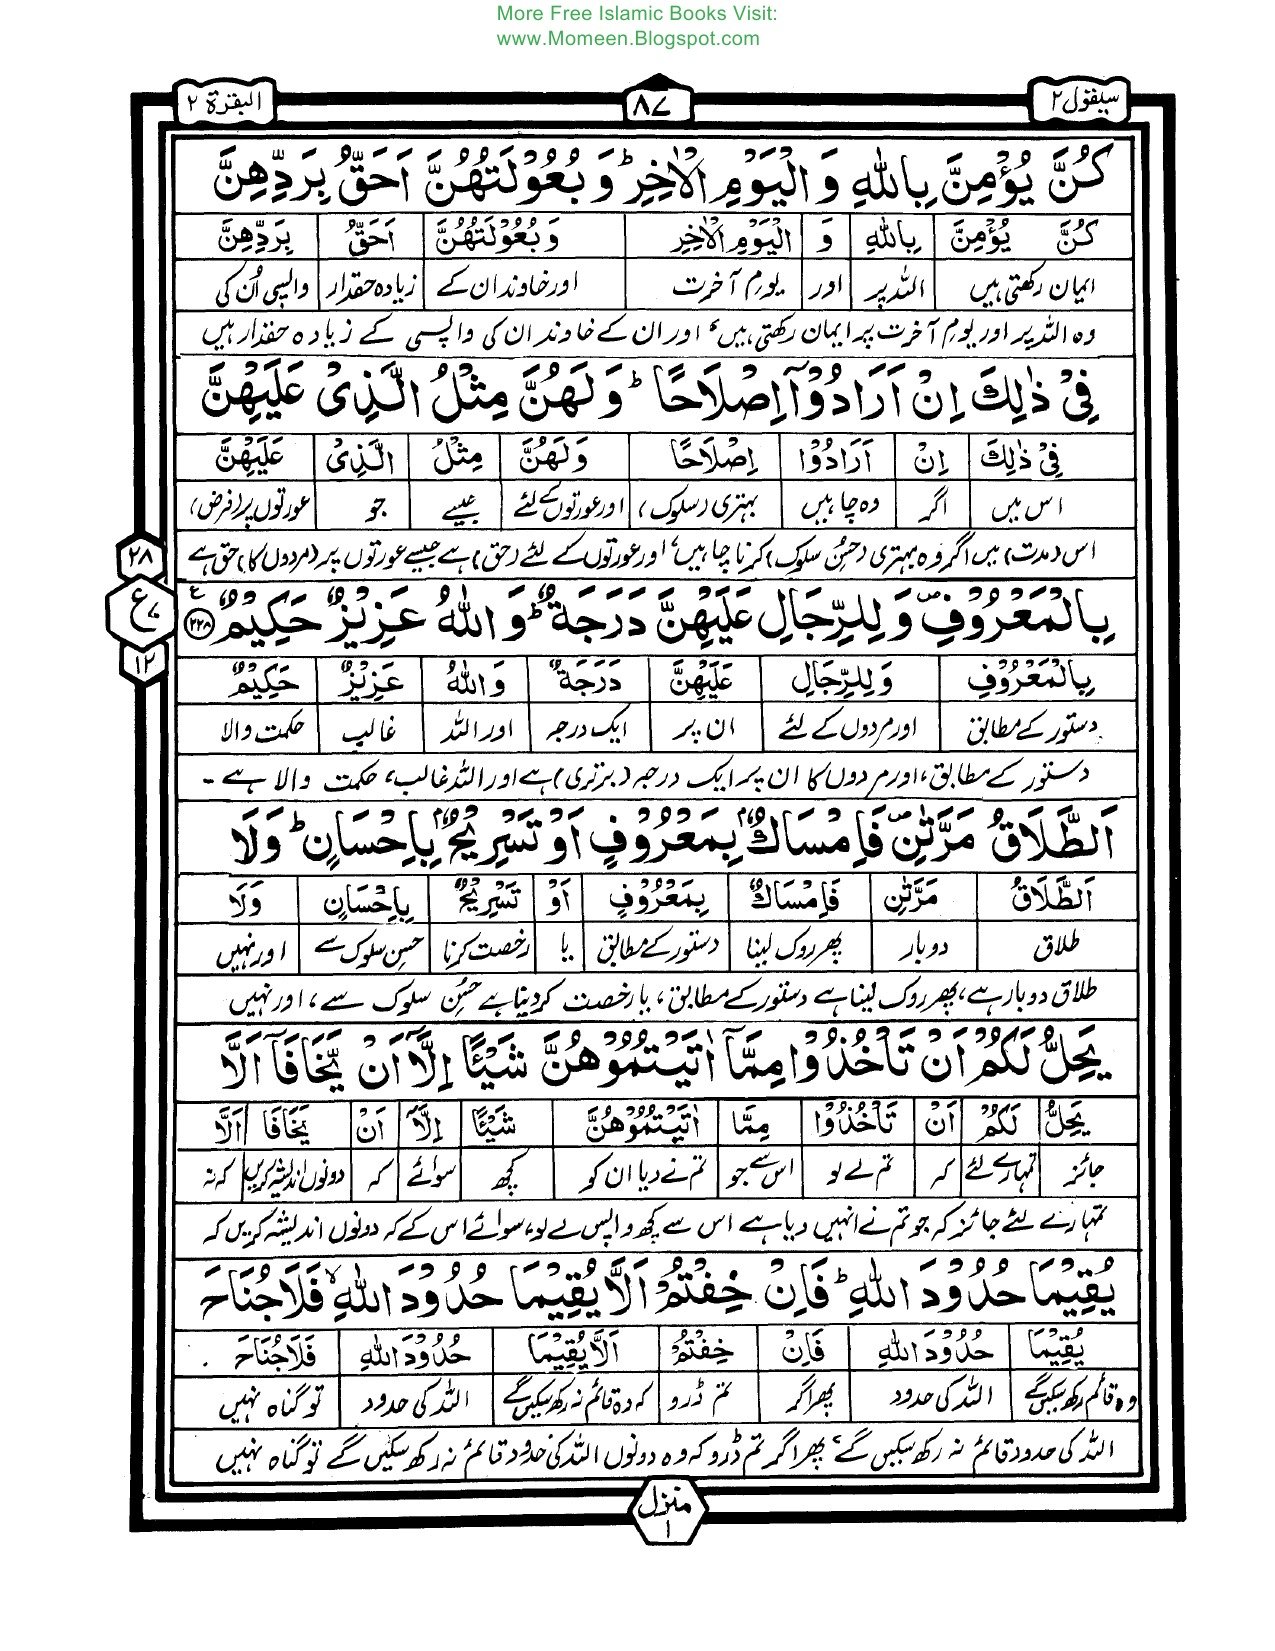 More Free Islamic Books Visit:
www.Momeen.Blogspot.com
سیقول ۲
۸۷
البقرة ۲
كُنَّ يُؤْمِنَّ بِاللّٰهِ وَ الْيَوْمِ الْاٰخِرِ ؕ وَ بُعُوْلَتُهُنَّ اَحَقُّ بِرَدِّهِنَّ
كُنَّ يُؤْمِنَّ بِاللّٰهِ وَ الْيَوْمِ الْاٰخِرِ وَ بُعُوْلَتُهُنَّ اَحَقُّ بِرَدِّهِنَّ
ایمان رکھتی ہیں اللہ پر اور یومِ آخرت اور خاوند ان کے زیادہ حقدار واپسی اُن کی
وہ اللہ پر اور یومِ آخرت پر ایمان رکھتی ہیں، اور ان کے خاوند ان کی واپسی کے زیادہ حقدار ہیں
فِیْ ذٰلِكَ اِنْ اَرَادُوْۤا اِصْلَاحًا ؕ وَ لَهُنَّ مِثْلُ الَّذِیْ عَلَيْهِنَّ
فِیْ ذٰلِكَ اِنْ اَرَادُوْا اِصْلَاحًا وَ لَهُنَّ مِثْلُ الَّذِیْ عَلَيْهِنَّ
اس میں اگر وہ چاہیں بہتری (سلوک) اور عورتوں کے لئے جیسے جو عورتوں پر (فرض)
اس (مدت) میں اگر وہ بہتری (حسنِ سلوک) کرنا چاہیں، اور عورتوں کے لئے (حق) ہے جیسے عورتوں پر (مردوں کا) حق ہے
۲۸
ع
۱۲
بِالْمَعْرُوْفِ ۪ وَ لِلرِّجَالِ عَلَيْهِنَّ دَرَجَةٌ ؕ وَ اللّٰهُ عَزِيْزٌ حَكِيْمٌ ۲۲۸
بِالْمَعْرُوْفِ وَ لِلرِّجَالِ عَلَيْهِنَّ دَرَجَةٌ وَ اللّٰهُ عَزِيْزٌ حَكِيْمٌ
دستور کے مطابق اور مردوں کے لئے ان پر ایک درجہ اور اللہ غالب حکمت والا
دستور کے مطابق، اور مردوں کا ان پر ایک درجہ (برتری) ہے اور اللہ غالب، حکمت والا ہے ۔
اَلطَّلَاقُ مَرَّتٰنِ ۪ فَاِمْسَاكٌۢ بِمَعْرُوْفٍ اَوْ تَسْرِيْحٌۢ بِاِحْسَانٍ ؕ وَ لَا
اَلطَّلَاقُ مَرَّتٰنِ فَاِمْسَاكٌ بِمَعْرُوْفٍ اَوْ تَسْرِيْحٌ بِاِحْسَانٍ وَ لَا
طلاق دو بار پھر روک لینا دستور کے مطابق یا رخصت کرنا حسنِ سلوک سے اور نہیں
طلاق دو بار ہے، پھر روک لینا ہے دستور کے مطابق، یا رخصت کر دینا ہے حسنِ سلوک سے، اور نہیں
يَحِلُّ لَكُمْ اَنْ تَاْخُذُوْا مِمَّاۤ اٰتَيْتُمُوْهُنَّ شَيْئًا اِلَّاۤ اَنْ يَّخَافَاۤ اَلَّا
يَحِلُّ لَكُمْ اَنْ تَاْخُذُوْا مِمَّا اٰتَيْتُمُوْهُنَّ شَيْئًا اِلَّاۤ اَنْ يَخَافَا اَلَّا
جائز تمہارے لئے کہ تم لے لو اس سے جو تم نے دیا ان کو کچھ سوائے کہ دونوں اندیشہ کریں کہ نہ
تمہارے لئے جائز کہ جو تم نے انہیں دیا ہے اس سے کچھ واپس لے لو، سوائے اس کے کہ دونوں اندیشہ کریں کہ
يُقِيْمَا حُدُوْدَ اللّٰهِ ؕ فَاِنْ خِفْتُمْ اَلَّا يُقِيْمَا حُدُوْدَ اللّٰهِ ۙ فَلَا جُنَاحَ
يُقِيْمَا حُدُوْدَ اللّٰهِ فَاِنْ خِفْتُمْ اَلَّا يُقِيْمَا حُدُوْدَ اللّٰهِ فَلَا جُنَاحَ
وہ قائم رکھ سکیں گے اللہ کی حدود پھر اگر تم ڈرو کہ وہ قائم نہ رکھ سکیں گے اللہ کی حدود تو گناہ نہیں
اللہ کی حدود قائم نہ رکھ سکیں گے، پھر اگر تم ڈرو کہ وہ دونوں اللہ کی حدود قائم نہ رکھ سکیں گے تو گناہ نہیں
منزل
۱